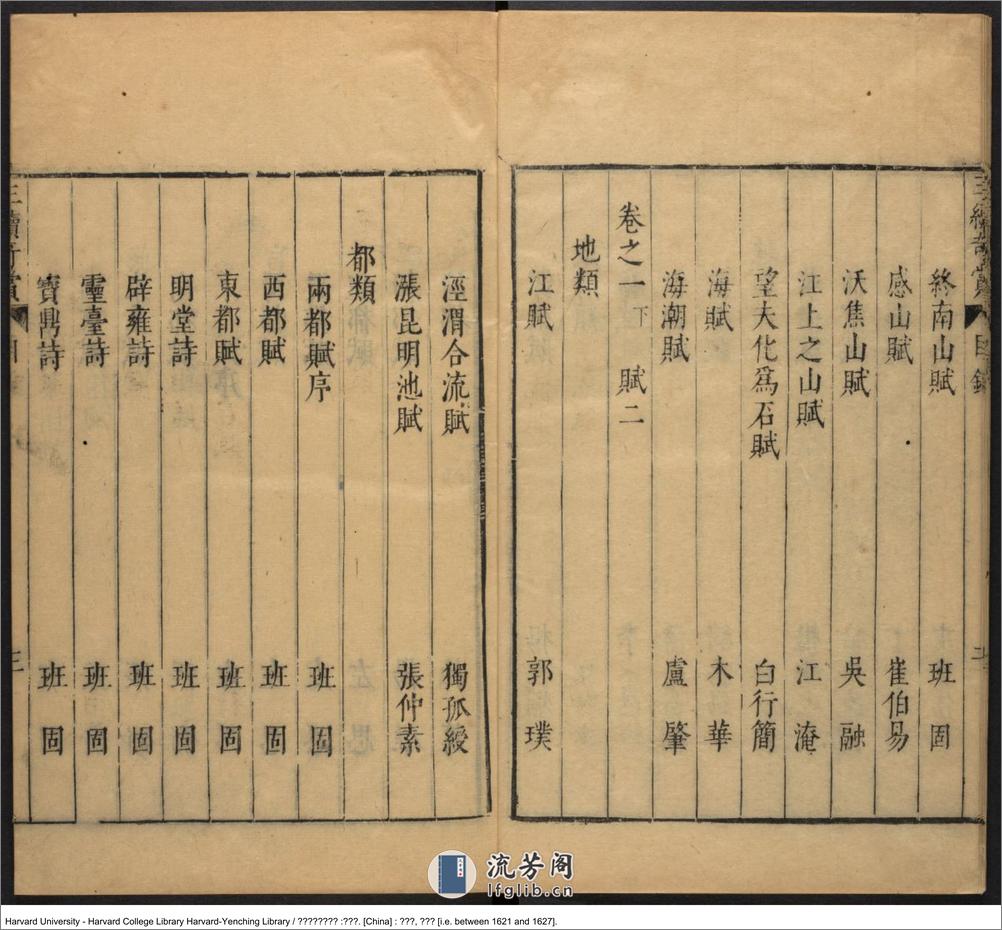 終南山賦 班固
感山賦 崔伯易
沃焦山賦 吳融
江上之山賦 江淹
望夫化爲石賦 白行簡
海賦 木華
海潮賦 盧肇
卷之一下 賦二
地類
江賦 郭璞
涇渭合流賦 獨孤綬
漲昆明池賦 張仲素
都類
兩都賦序 班固
西都賦 班固
東都賦 班固
明堂詩 班固
辟雍詩 班固
靈臺詩 班固
寶鼎詩 班固
三續奇賞
三
流芳阁
lfglib.cn
Harvard University - Harvard College Library Harvard-Yenching Library / ???????? :???. [China] : ???, ??? [i.e. between 1621 and 1627].